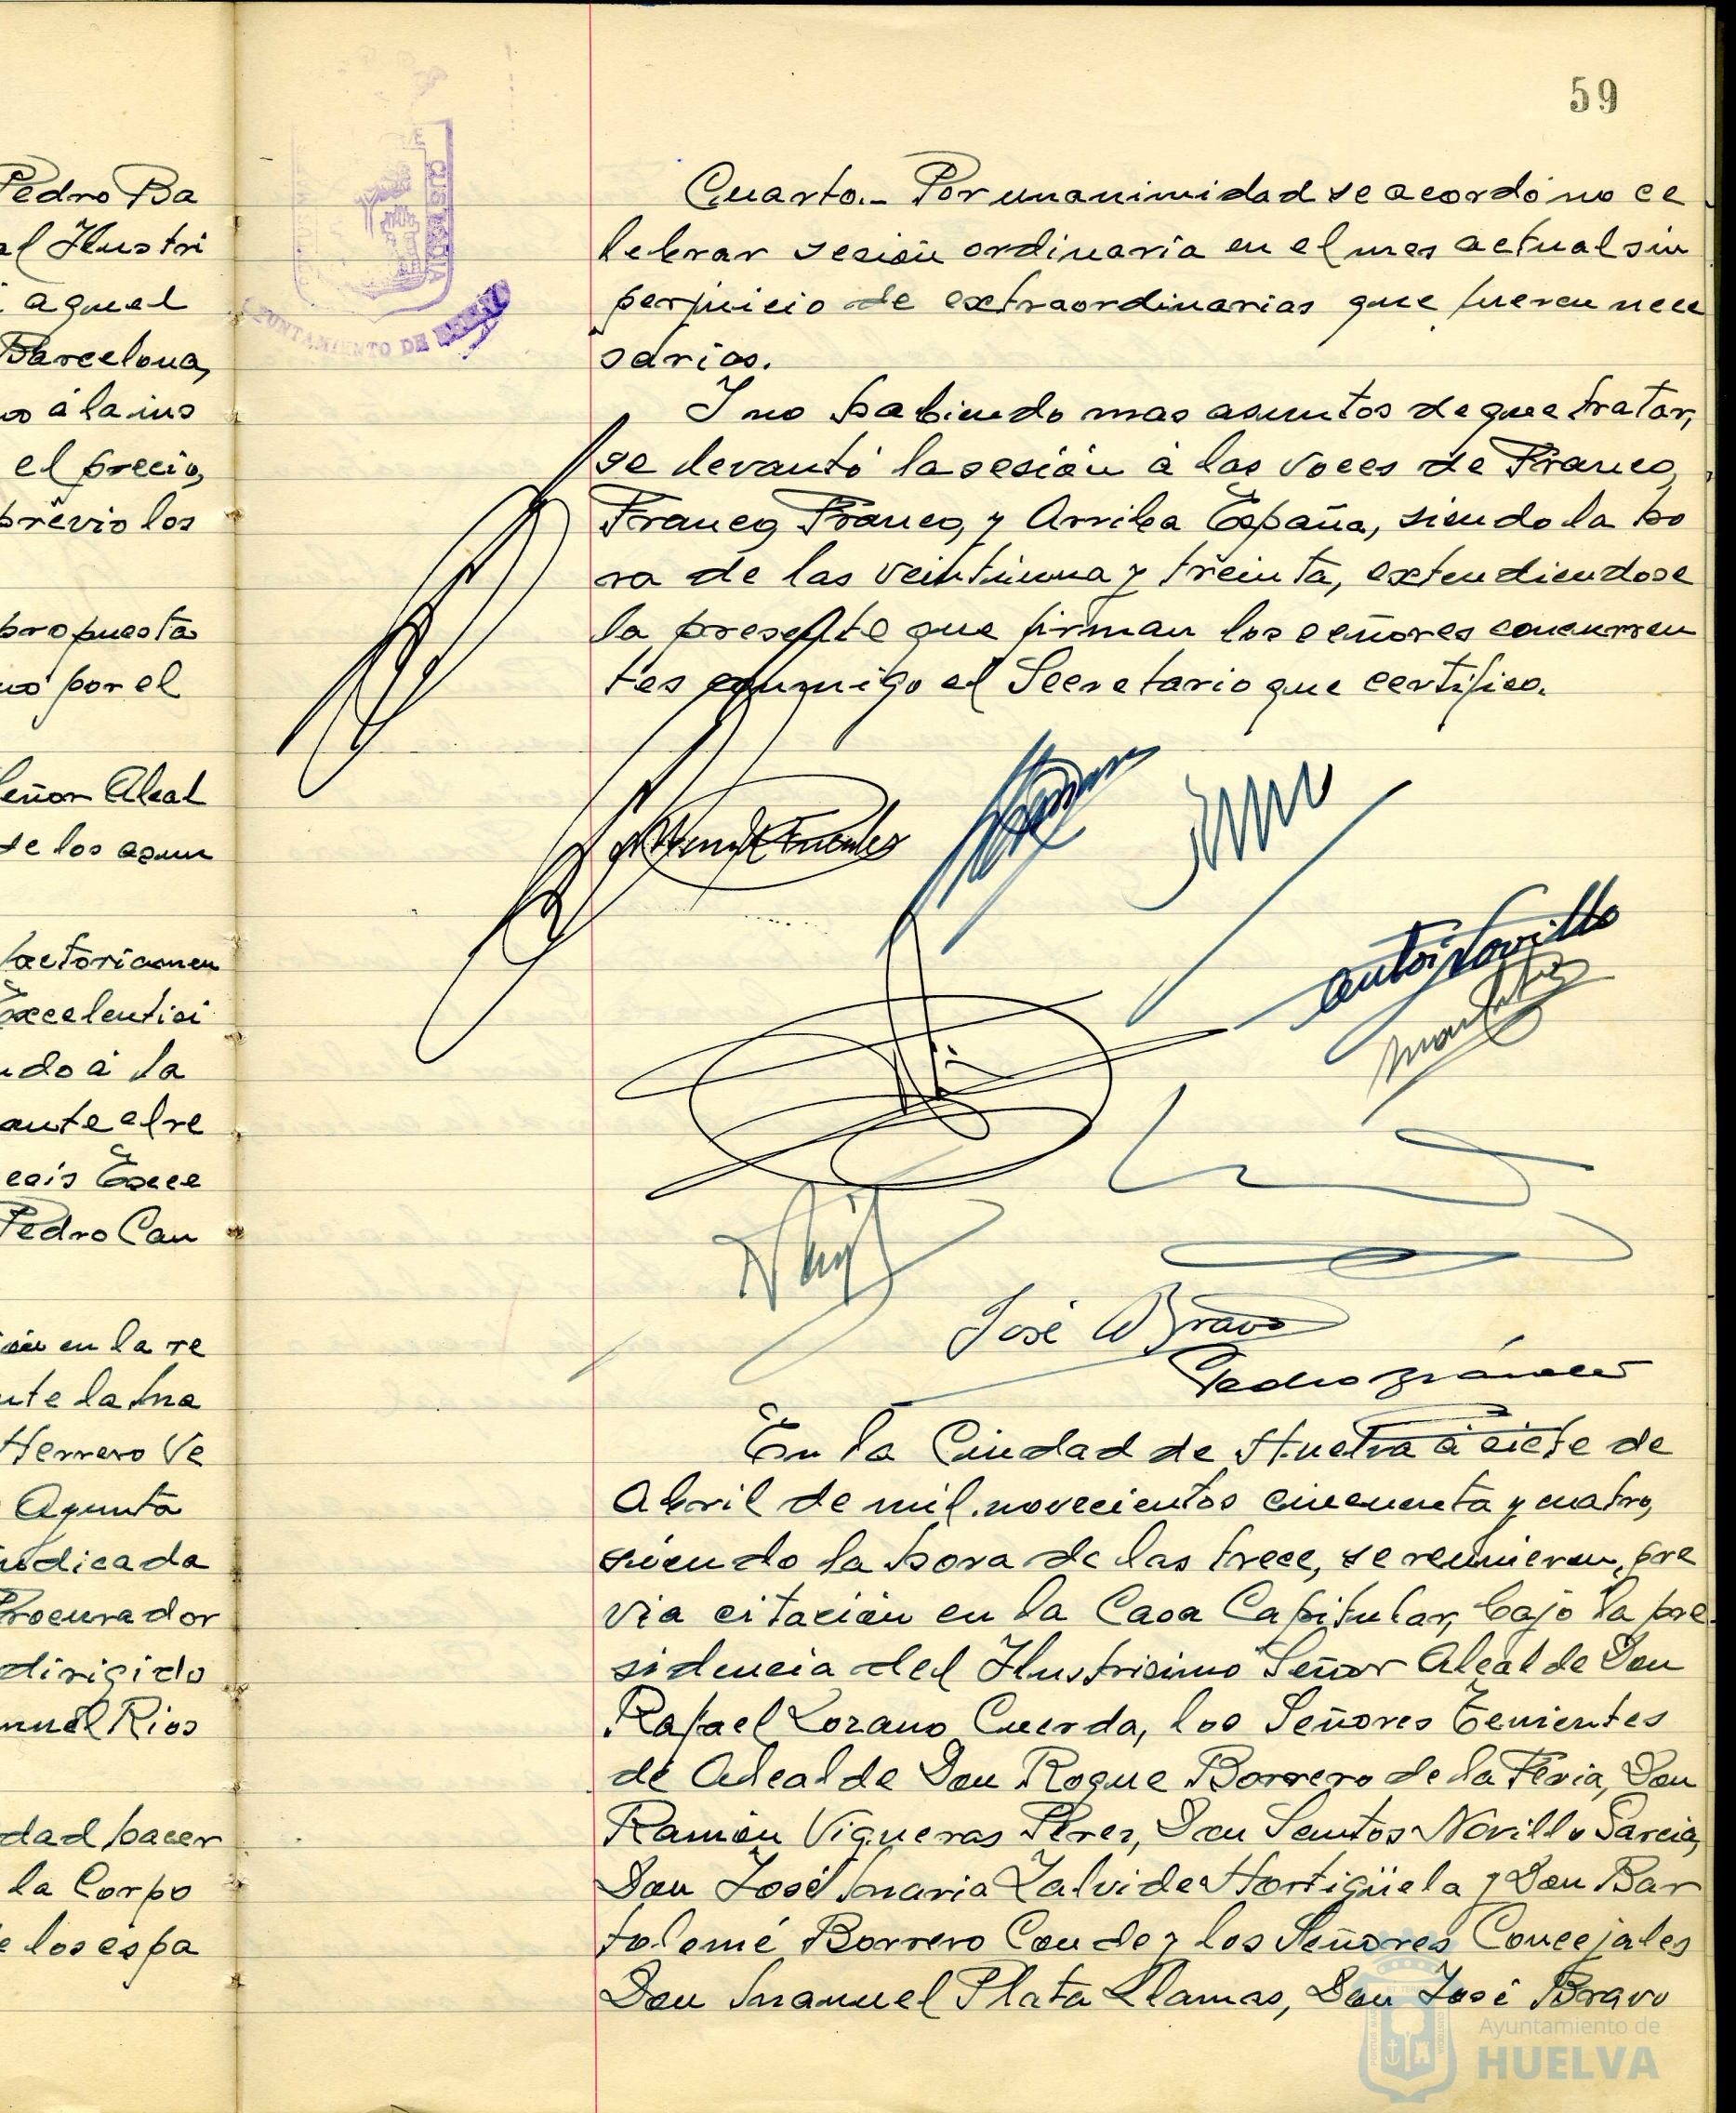 59
Pedro Ba
al Ilustri
aquel
Barcelona,
á la ins
el precio,
previo los
propuesta
por el
eñor Alcal
de los asun
factoriamen
Excelentísi
ndo á la
ante el re
Exce
Pedro Can
en la re
nte la Ma
Herrero Ve
Ayunta
ndicada
Procurador
dirigido
nuel Rios
dad hacer
la Corpo
e los espa
AYUNTAMIENTO DE
CUSTODIA
Cuarto.- Por unanimidad se acordó no ce
lebrar sesión ordinaria en el mes actual sin
perjuicio de extraordinarias que fueren nece
sarias.
Y no habiendo mas asuntos de que tratar,
se levantó la sesión á las voces de Franco,
Franco, Franco, y Arriba España, siendo la ho
ra de las veintiuna y treinta, extendiendose
la presente que firman los señores concurren
tes conmigo el Secretario que certifico.
José Bravo
Pedro
En la Ciudad de Huelva á siete de
Abril de mil novecientos cincuenta y cuatro,
siendo la hora de las trece, se reunieron, pre
via citación en la Casa Capitular, bajo la pre
sidencia del Ilustrisimo Señor Alcalde Don
Rafael Lozano Cuerda, los Señores Tenientes
de Alcalde Don Roque Borrero de la Feria, Don
Ramón Vigueras Pérez, Don Santos Novillo Garcia,
Don José Maria Zalvide Hortigüela y Don Bar
tolomé Borrero Conde y los Señores Concejales
Don Manuel Plata Llamas, Don José Bravo
Ayuntamiento de
HUELVA